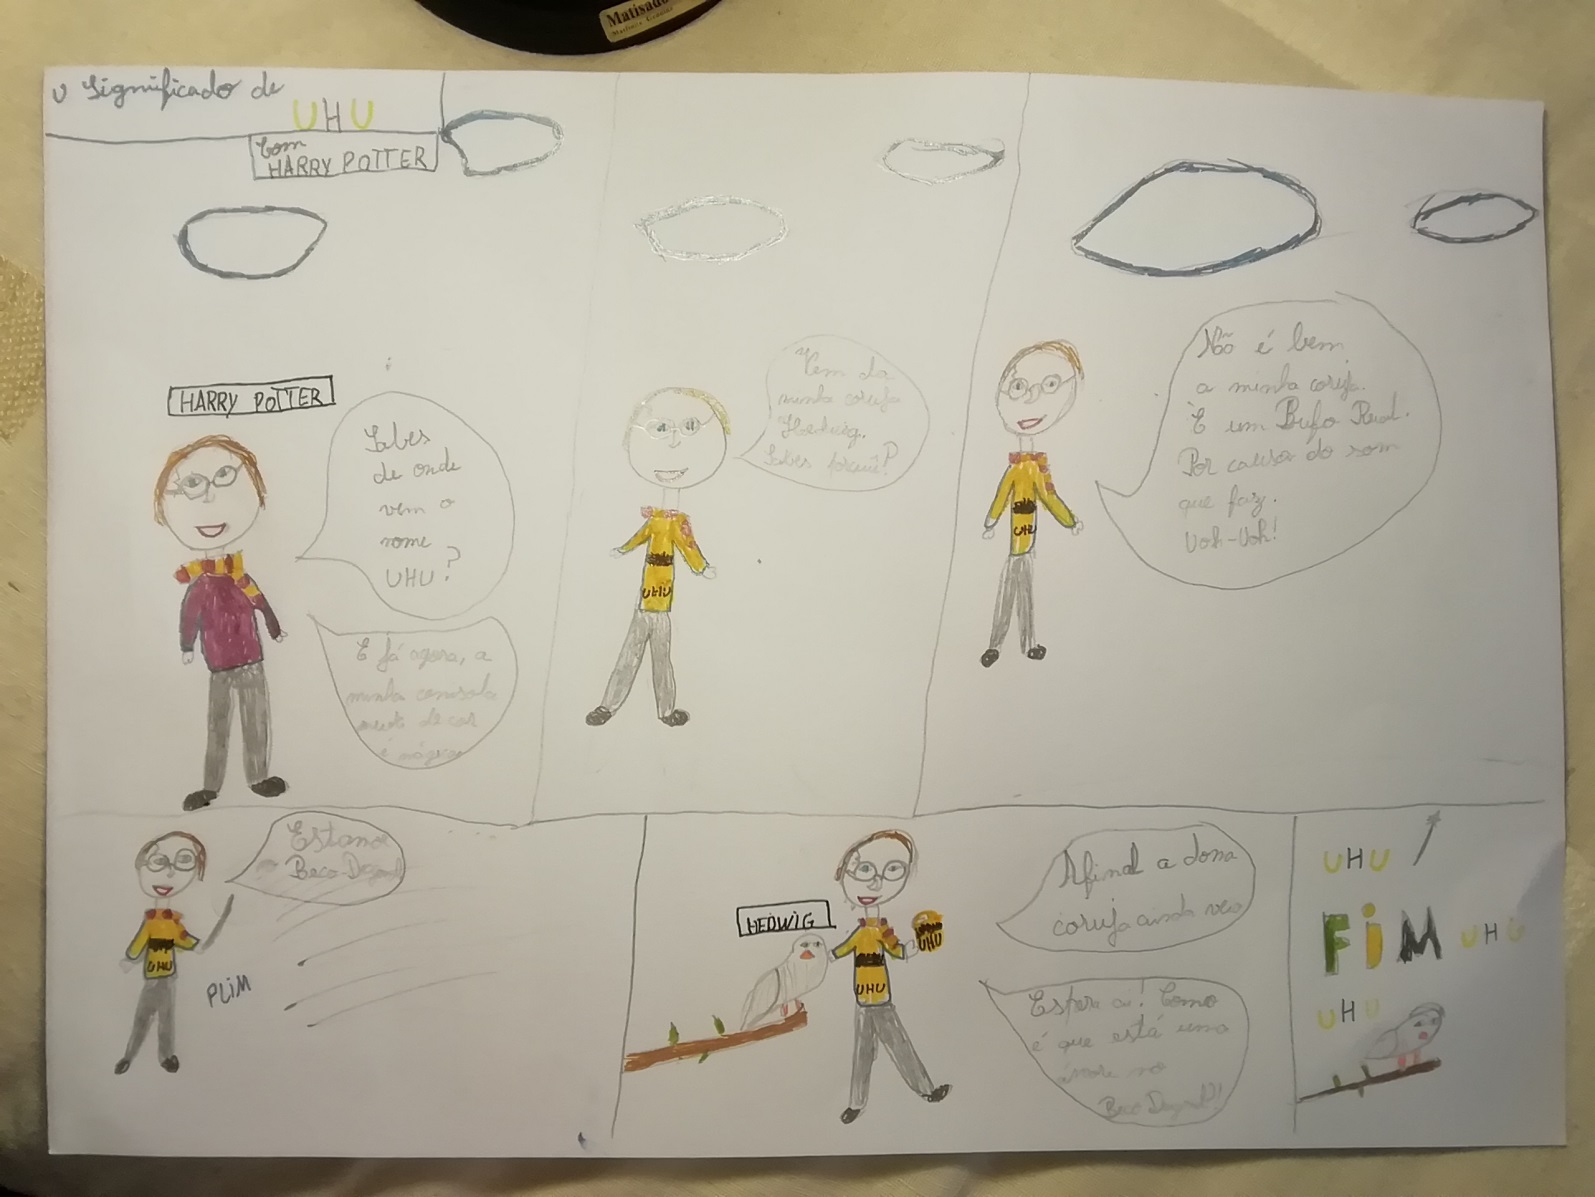 Matisado
O Significado de
UHU
Com
HARRY POTTER
HARRY POTTER
Sabes
de onde
vem o
nome
UHU?
E já agora, a
minha camisola
de cor
é mágica
Vem da
minha coruja
Hedwig.
Sabes porquê?
UHU
Não é bem
a minha coruja.
É um Bufo Real.
Por causa do som
que faz.
Uoh-Uoh!
UHU
Estamos
Beco
UHU
PLIM
HEDWIG
UHU
UHU
Afinal a dona
coruja ainda veio
Espera aí! Como
é que está uma
árvore no
Beco
UHU
FiM
UHU
UHU